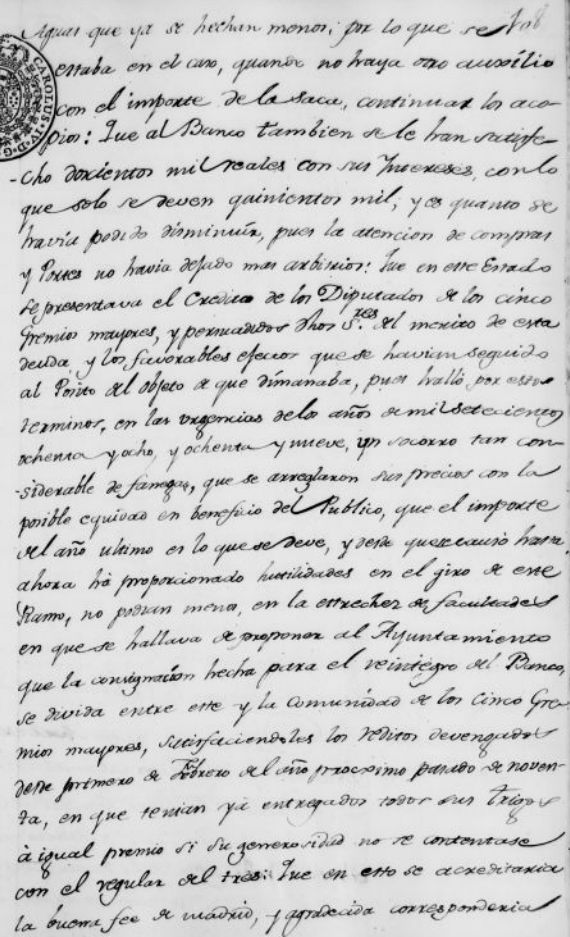 Aguas que ya se hechan menos; por lo que se
estaba en el caso, quando no haya otro auxilio
con el importe de la saca, continuar los aco-
pios: Que al Banco tambien se le han satisfe-
-cho doscientos mil reales con sus Intereses, con lo
que solo se deven quinientos mil; y es quanto se
havia podido disminuir, pues la atencion de compras
y Portes no havia dejado mas arbitrios: Que en este Estado
se presentava el Credito de los Diputados de los cinco
Gremios mayores, y persuadidos dhos S.res del merito de esta
deuda, y los favorables efectos que se havian seguido
al Posito del objeto de que dimanaba, pues halló por estos
terminos, en las urgencias de los años de mil setecientos
ochenta y ocho, y ochenta y nueve, un socorro tan con-
-siderable de fanegas, que se arreglaron sus precios con la
posible equidad en beneficio del Publico, que el importe
del año ultimo es lo que se deve, y desde que se causó hasta
ahora há proporcionado hutilidades en el giro de este
Ramo, no podian menos, en la estrechez de facultades
en que se hallava de proponer al Ayuntamiento
que la consignacion hecha para el reintegro del Banco,
se divida entre este y la Comunidad de los Cinco Gre-
mios mayores, satisfaciendoles los reditos devengados
desde primero de Febrero del año procsimo pasado de noven-
ta, en que tenian yá entregados todos sus trigos
á igual premio si su generosidad no se contentase
con el regular del tres: Que en esto se acreditaria
la buena fee de Madrid, y agradecida correspondencia
CAROLUS IV D G